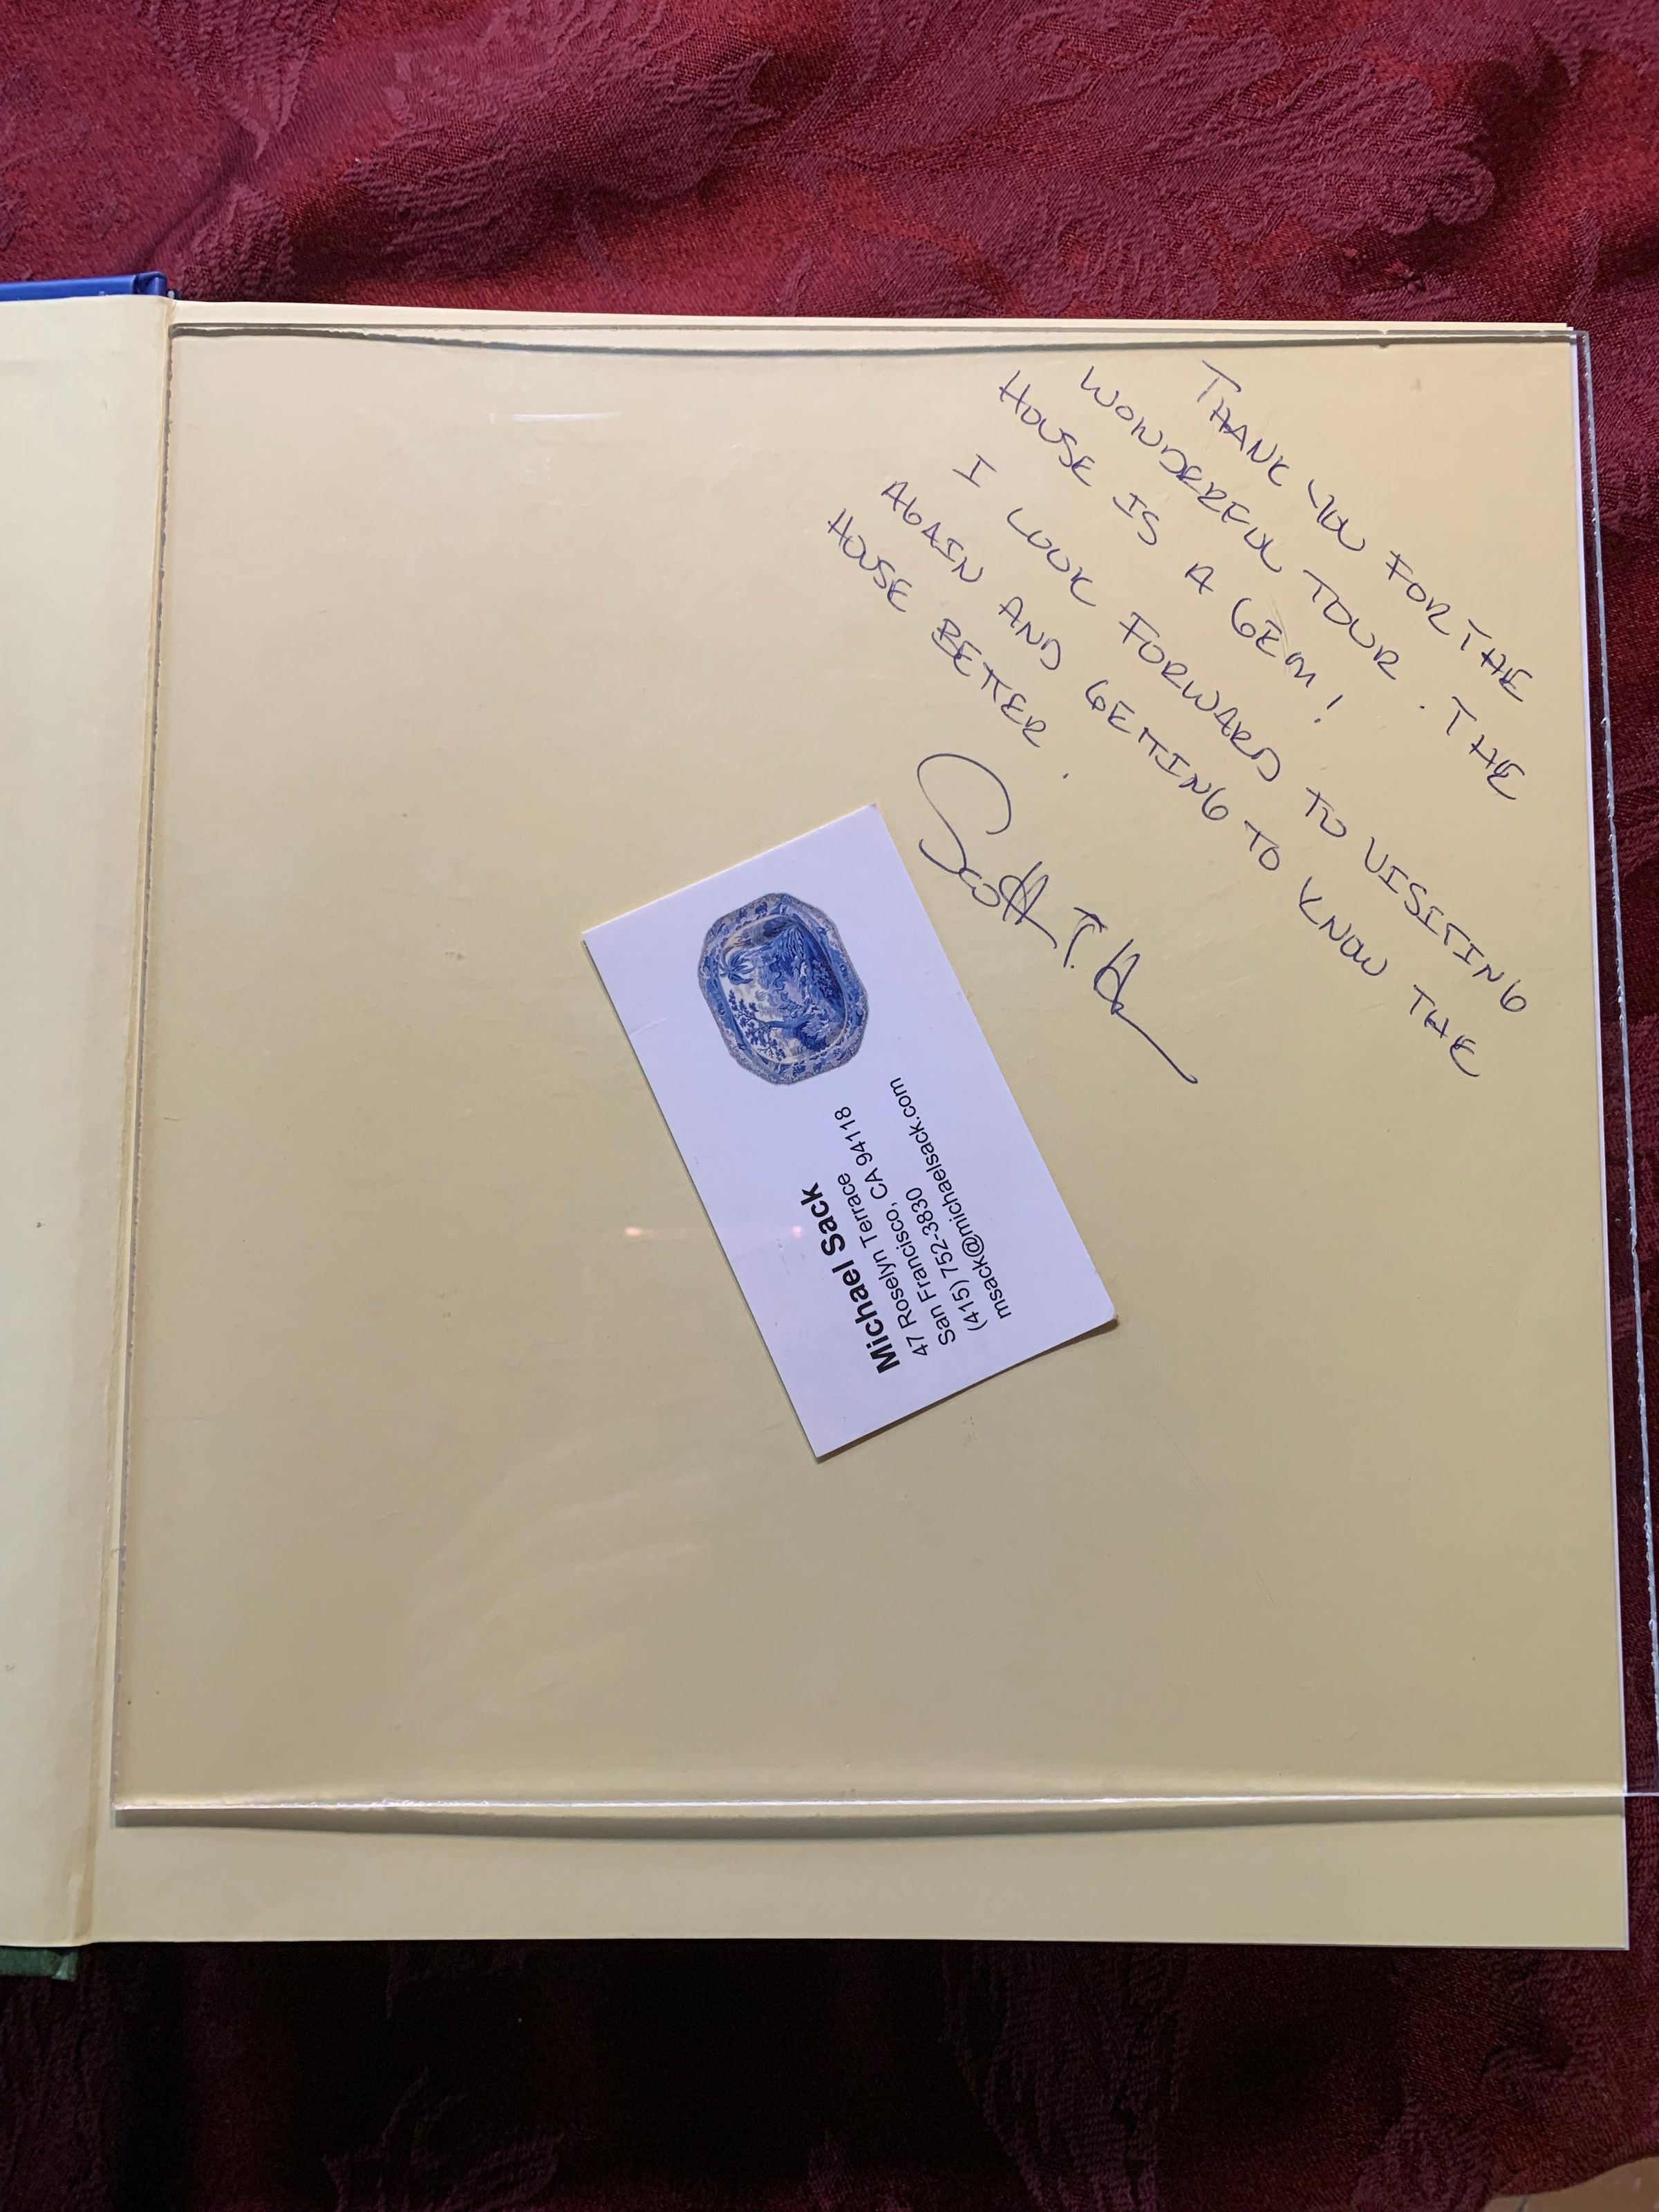 THANK YOU FOR THE
WONDERFUL TOUR. THE
HOUSE IS A GEM!
I LOOK FORWARD TO VISITING
AGAIN AND GETTING TO KNOW THE
HOUSE BETTER.
Scott T.
Michael Sack
47 Roselyn Terrace
San Francisco, CA 94118
(415) 752-3830
msack@michaelsack.com